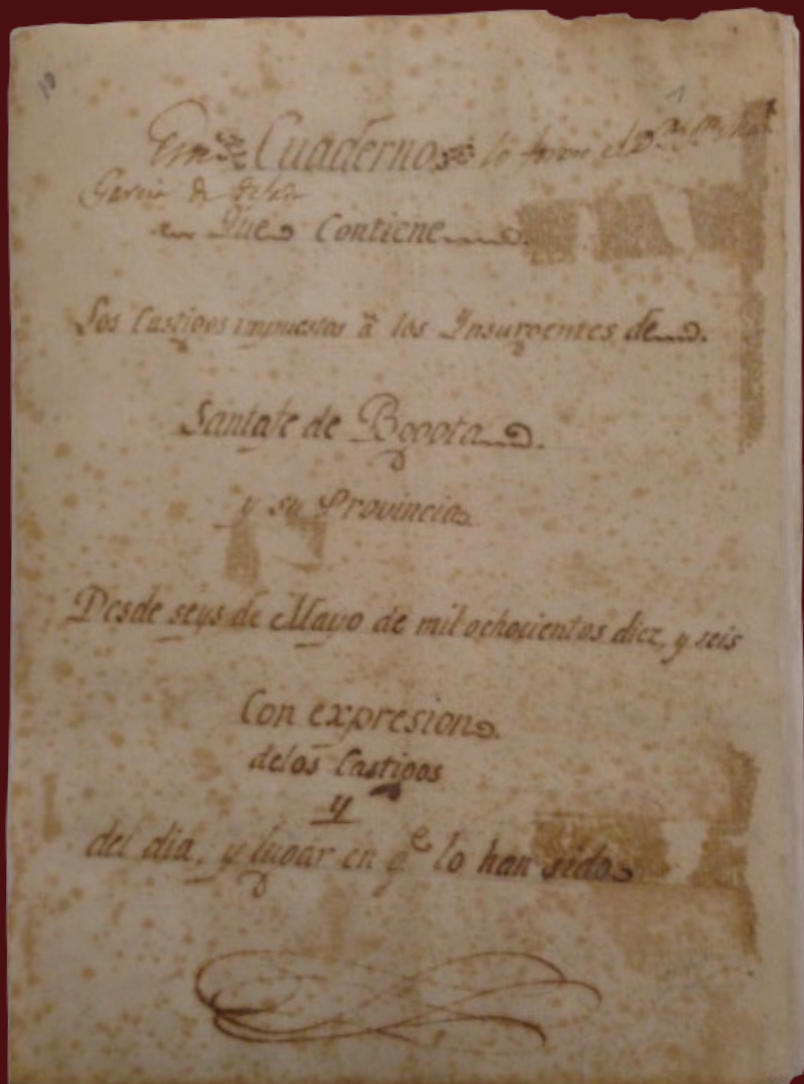 10
Cuaderno lo formó el D.
Garcia de
Que Contiene
Los Castigos impuestos á los Ynsurgentes de
Santafe de Bogota
y su Provincia
Desde seys de Mayo de mil ochocientos diez, y seis
Con expresion
delos Castigos
y
del dia, y lugar en qe lo han sido